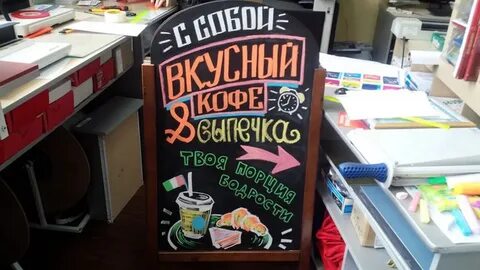 С СОБОЙ
ВКУСНЫЙ
КОФЕ
& выпечка
ТВОЯ ПОРЦИЯ
БОДРОСТИ